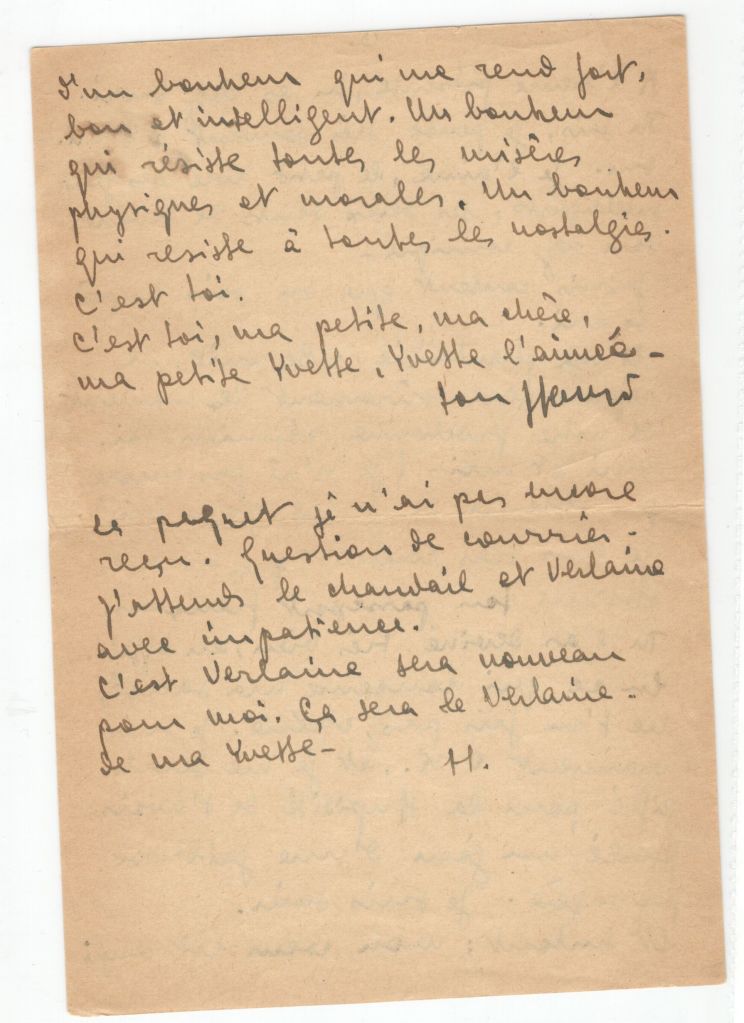 d'un bonheur qui me rend fort,
bon et intelligent. Un bonheur
qui résiste toutes les misères
physiques et morales. Un bonheur
qui resiste à toutes les nostalgies.
C'est toi.
C'est toi, ma petite, ma chère,
ma petite Yvette, Yvette l'aimée -
ton
Le paquet je n'ai pas encore
reçu. Question de courrier.
J'attends le chandail et Verlaine
avec impatience.
C'est Verlaine sera nouveau
pour moi. Ça sera le Verlaine
de ma Yvette -
H.